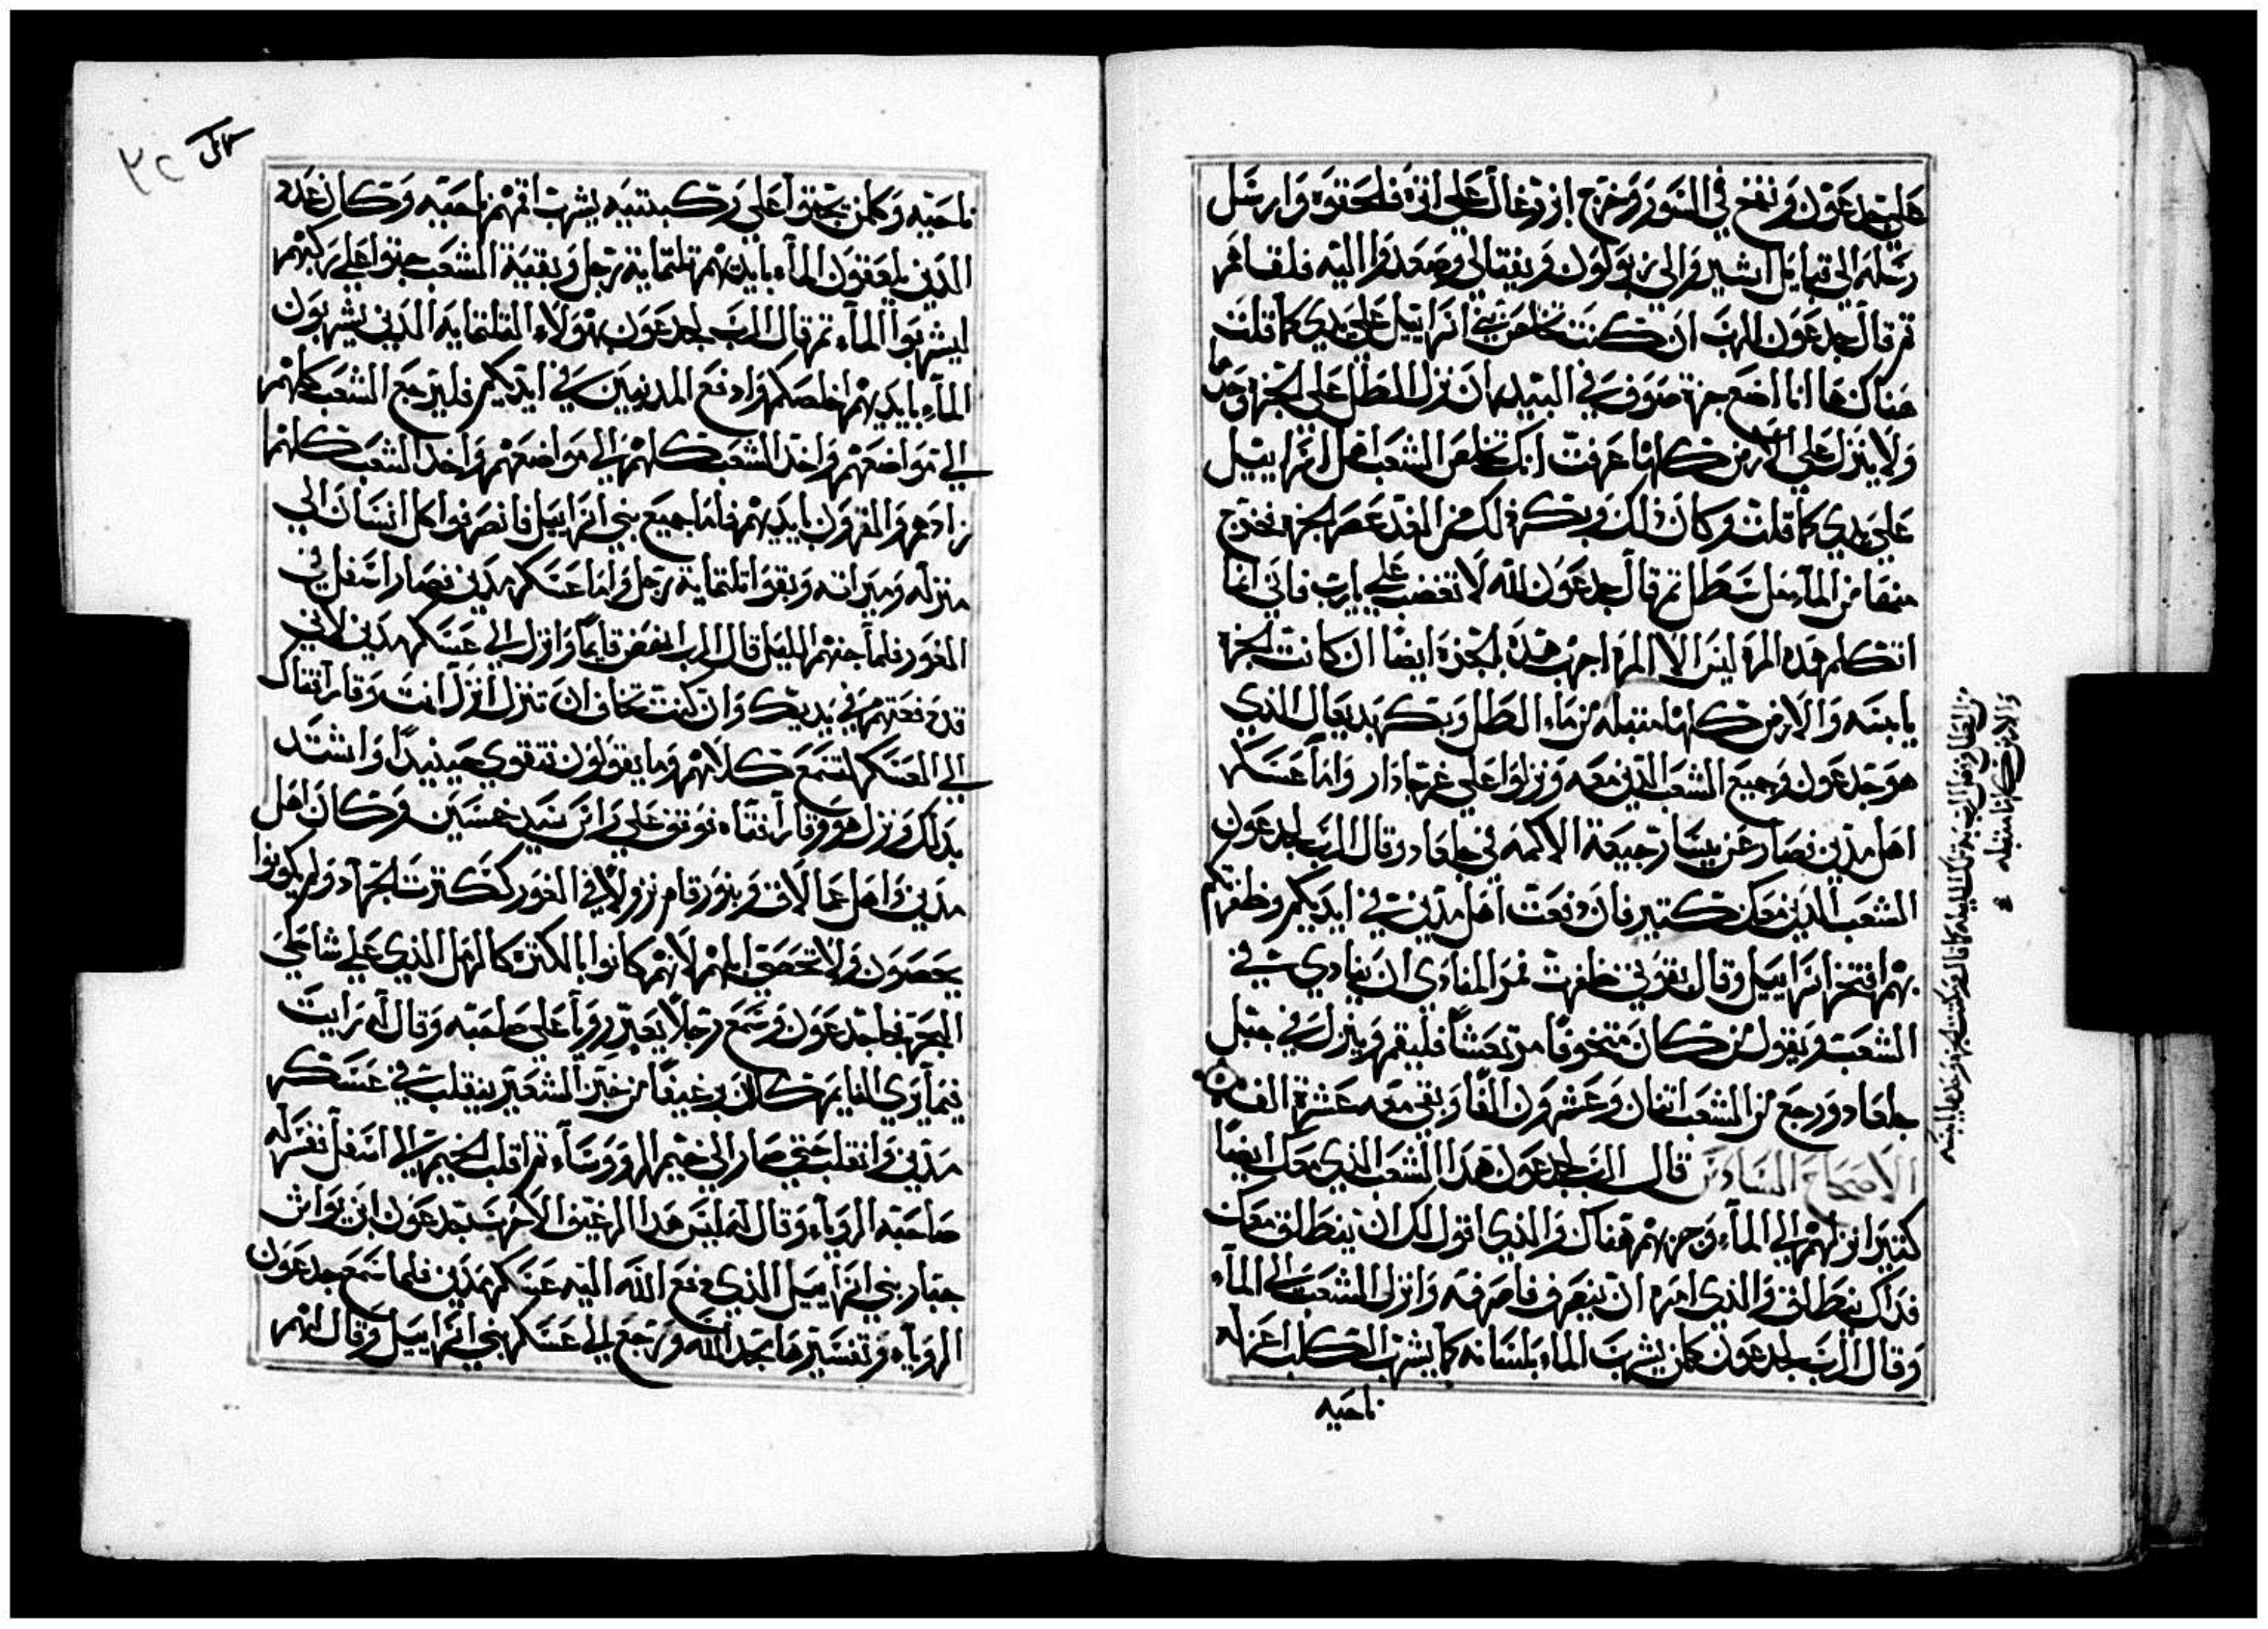 علي جدعون ونفخ في السور وخرج ابزوغال علي اثره فلحقوه وارسل
رسله الي قبايل اشير والي زبولون ونفتالي وصعدوا اليه فلقاهم
تم قال جدعون للرب ان كنت تخلص بني اسراييل علي يدي كما قلت
هناك ها انا اضع جزة صوف في البيدر ان نزل الطل علي الجزه وحدها
ولا ينزل علي الارض كلها عرفت انك تخلص الشعب اهل اسراييل
علي يدي كما قلت وكان ذلك وبكر ذلك من الغد عصر الجزه فخرج
منها من الماء مل سطل تم قال جدعون لله لا تغضب علي يارب فاني انما
اتكلم هذه المره ليس الا المره اجرب هذه الجزه ايضا ان كانت الجزه
يابسه والارض كلها مبتله من ماء الطل وبكر يربعال الذي
هو جدعون وجميع الشعب الذين معه ونزلوا علي عين حاذار واما عسكر
اهل مدين فصار عن يسار جيعة الاكمه في جلعاد وقال الرب لجدعون
الشعب الذين معك كتير فان دفعت اهل مدين في ايديكم وظفرتكم
بهم افتخر اسراييل وقال بقوتي ظفرت فمر المنادي ان ينادي في
الشعب ويقول من كان متخوفا مرتعشا فليقم وينزل في جبل
جلعاد ورجع من الشعب اتنان وعشرون الفا وبقي معه عشرة الف
الاصحاح السادس قال الرب لجدعون هذا الشعب الذي معك ايضا
كتير انزلهم الي الماء وجربهم هناك والذي اقول لك ان ينطلق معك
فذاك ينطلق والذي امره ان ينصرف فاصرفه وانزل الشعب الي الماء
وقال الرب لجدعون كلمن يشرب الماء بلسانه كما يشرب الكلب اعزله
ناحيه
والارض كلها مبتله
ناحيه وكلمن يجتوا علي ركبتيه يشرب اقمهم ناحيه وكان عدة
الذين يلعقون الماء بايديهم تلتماية رجل وبقية الشعب جتوا علي ركبهم
ليشربوا الماء تم قال الرب لجدعون بهولاء التلتمايه الذين يشربون
الماء بايديهم اخلصكم وادفع المدينيين في ايديكم فليرجع الشعب كلهم
الي مواضعهم واخذ الشعب كلهم الي مواضعهم واخذ الشعب كلهم
زادهم والقرون بايديهم فاما جميع بني اسراييل فانصرفوا كل انسان الي
منزله وميراته وبقوا تلتماية رجل واما عسكر مدين فصار اسفل في
الغور فلما جنهم الليل قال الرب انهض قايما وانزل الي عسكر مدين لاني
قد دفعتهم في يديك وان كنت تخاف ان تنزل انزل انت وفارا فتاك
الي العسكر لتسمع كلامهم وما يقولون فتقوي حينيذا واشتد
بذلك ونزل هو وفارا فتاه فوقف علي راس سيد خمسين وكان اهل
مدين واهل عمالاق وبنو رقام نزولا في الغور كنكترت الجراد ولم يكونوا
يحصون ولا تحصي ابلهم لانهم كانوا بالكتره كالرمل الذي علي شاطي
البحر فجا جدعون وسمع رجلا يعبر رويا علي صاحبه وقال له رايت
فيما يري النايم كان رغيفا من خبز الشعير ينقلب في عسكر
مدين وانقلب حتي صار الي خيم الروساء تم اقلب الخيم الي اسفل ففسر له
صاحبه الروياء وقال له ليس هذا الرغيف الا حرب جدعون ابن يواش
جبار بني اسراييل الذي دفع الله اليه عسكر مدين فلما سمع جدعون
الروياء وتفسيرها سجد لله ورجع الي عسكر بني اسراييل وقال لهم